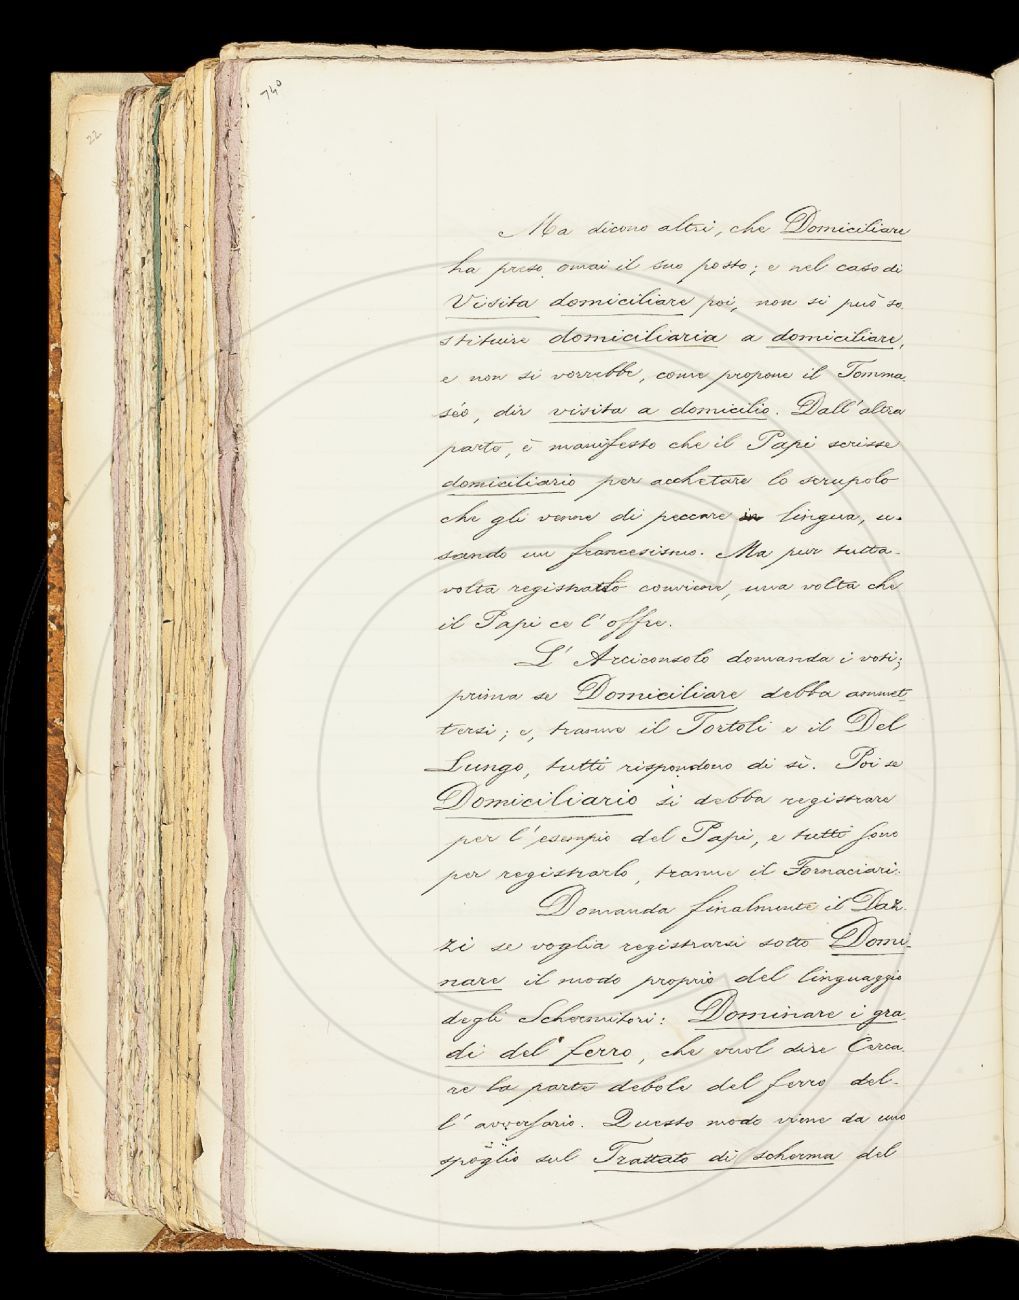 740
22
Ma dicono altri, che Domiciliare
ha preso omai il suo posto; e nel caso di
Visita domiciliare poi, non si può so
stituire domiciliaria a domiciliare,
e non si vorrebbe, come propone il Tomma
séo, dir visita a domicilio. Dall'altra
parte, è manifesto che il Papi scrisse
domiciliario per acchetare lo scrupolo
che gli venne di peccare in lingua, u-
sando un francesismo. Ma pur tutta-
volta registrarlo conviene, una volta che
il Papi ce l'offre.
L'Arciconsolo domanda i voti;
prima se Domiciliare debba ammet-
tersi; e, tranne il Tortoli e il Del
Lungo, tutti rispondono di sì. Poi se
Domiciliario si debba registrare
per l'esempio del Papi, e tutti sono
per registrarlo, tranne il Fornaciari.
Domanda finalmente il Daz-
zi se voglia registrarsi sotto Domi-
nare il modo proprio del linguaggio
degli Schermitori: Dominare i gra-
di del ferro, che vuol dire Cerca-
re la parte debole del ferro del-
l'avversario. Questo modo viene da uno
spoglio sul Trattato di scherma del